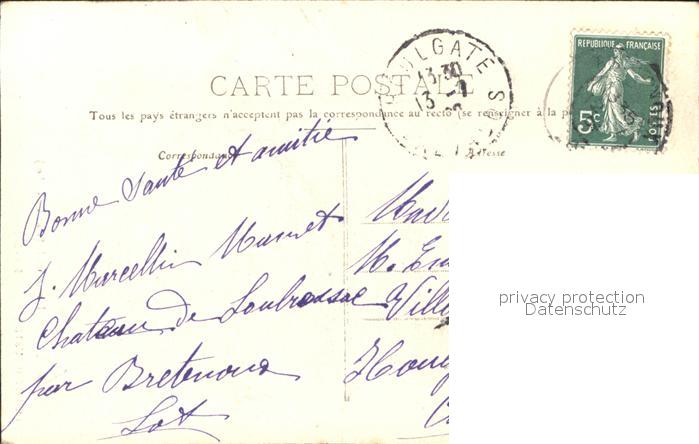 CARTE POSTALE
Tous les pays étrangers n'acceptent pas la correspondance au recto (se renseigner à la p
Correspondan
HOULGATE
13 30
13
RÉPUBLIQUE FRANÇAISE
5c
POSTES
Bonne Santé et amitié
J. Marcellin
Chateau de Loubressac
par Bretenoux
Lot
M. Em
Ville
privacy protection
Datenschutz